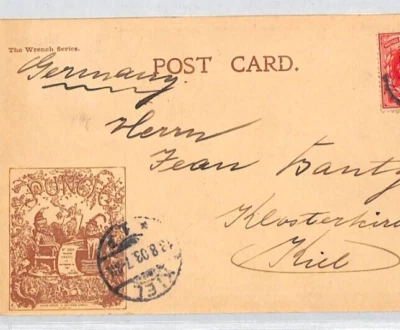 The Wrench Series.
POST CARD.
Germany
Herrn
Jean
Klosterkir
Kiel
PUNCH
KIEL
13.8.03.7